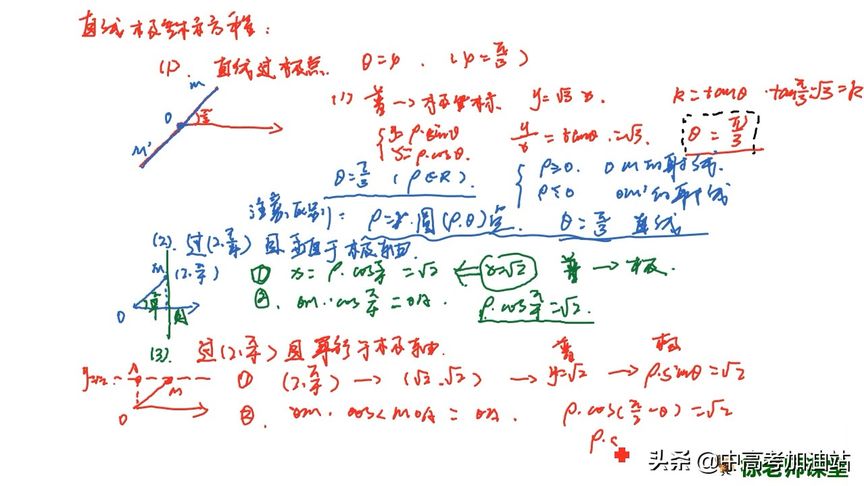 直线极坐标方程：
(1). 直线过极点. θ=φ. (φ=π/3)
(1) 普→极坐标. y=√3 x. k=tanθ. tanπ/3=√3=k
{y=ρ·sinθ x=ρ·cosθ. y/x=tanθ.=√3. θ=π/3
M O π/3 M'
θ=π/3 (ρ∈R). {ρ≥0. OM的射线. ρ≤0 OM'的射线
注意区别: ρ=r.圆(ρ.θ) θ=π/3 直线
(2). 过(2.π/4)且垂直于极轴
M (2.π/4) O π/4 A
① x=ρ.cosπ/4=√2 ← x=√2 普→极.
②. OM.cosπ/4=OA. ρ.cosπ/4=√2.
(3). 过(2.π/4)且平行于极轴.
y=√2 A M O
① (2.π/4)→(√2.√2) → 普 y=√2 → 极 ρ.sinθ=√2
②. OM.cos<MOA=OA. ρ.cos(π/2-θ)=√2
ρ.s
头条 @中高考加油站
徐老师课堂